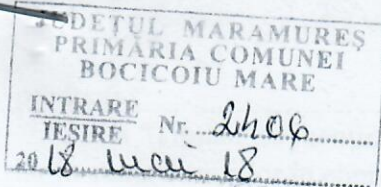 JUDEŢUL MARAMUREŞ
PRIMĂRIA COMUNEI
BOCICOIU MARE
INTRARE
IEŞIRE Nr. 2406
2018 mai 18